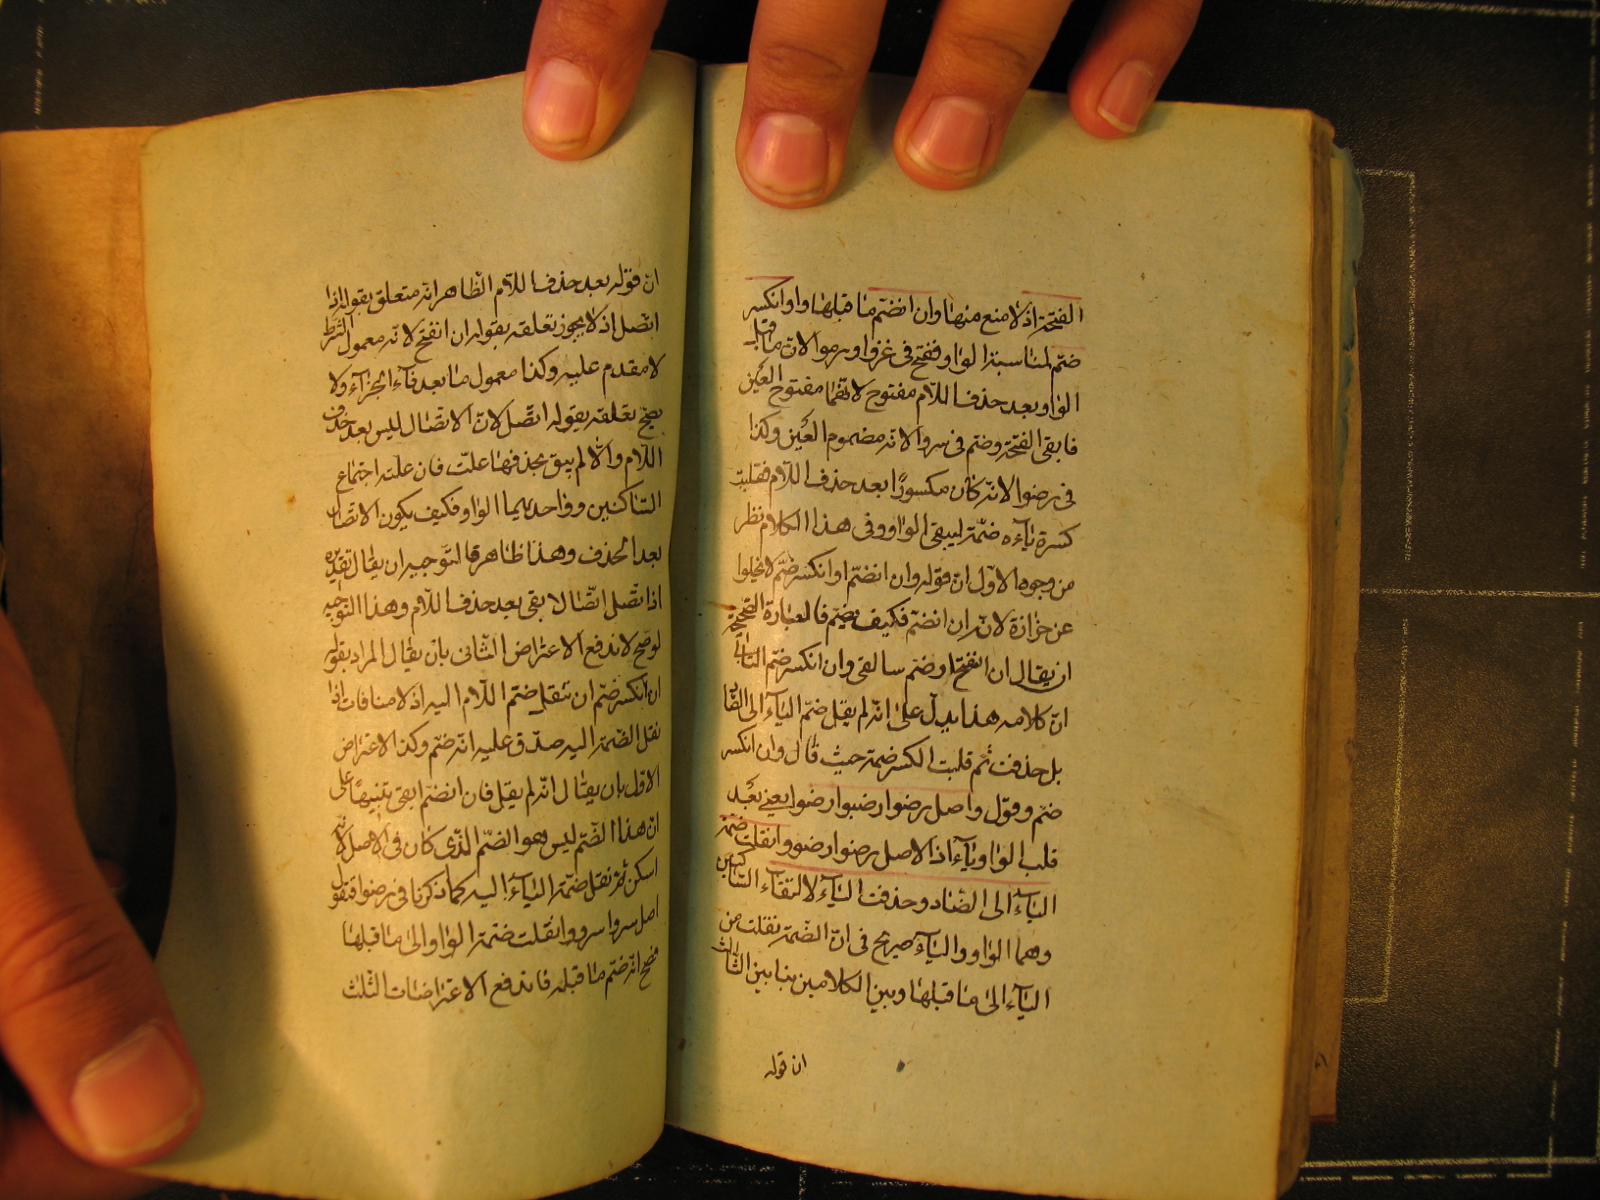 الفتحة اذ لا منع منها وان انضم ما قبلها واو انكسر
ضم لمناسبة الواو ففتح في غزوا ورموا لان ما قبل
الواو بعد حذف اللام مفتوح لانهما مفتوح العين
فابقى الفتحة وضم في سروا لانه مضموم العين وكذا
في رضوا لانه كان مكسورا بعد حذف اللام فقلبت
كسرة ياءه ضمة ليبقى الواو وفي هذا الكلام نظر
من وجوه الاول ان قوله وان انضم او انكسر ضم لا يخلوا
عن حزازة لانه ان انضم فكيف يضم فالعبارة الصحيحة
ان يقال ان انفتح او ضم سا لقى وان انكسر ضم الثاني
ان كلامه هذا يدل على انه لم يقل ضم الياء الى الضاد
بل حذفت ثم قلبت الكسر ضمة حيث قال وان انكسر
ضم وقول واصل رضوا رضيوا رضوا يعني بعد
قلب الواو ياء اذ الاصل رضوا رضووا نقلت ضمة
الياء الى الضاد وحذفت الياء لالتقاء الساكنين
وهما الواو والياء صريح في ان الضمة نقلت من
الياء الى ما قبلها وبين الكلامين بنا بين الثالث
ان قوله
ان قوله بعد حذف اللام الظاهر انه متعلق بقوله اذا
اتصل اذ لا يجوز تعلقه بقوله ان انفتح لانه معمول الشرط
لا مقدم عليه وكذا معمول ما بعد فاء الجزاء ولا
يصح تعلقه بقوله اتصل لان الاتصال لليس بعد حذف
اللام والا لم يبق بحذفها علت فان علته اجتماع
الساكنين وواحد يهما الواو فكيف يكون الاتصال
بعد الحذف وهذا ظاهر فالتوجيه ان يقال تقديره
اذا تصل اتصالا بقى بعد حذف اللام وهذا التوجيه
لو صح لاندفع الاعتراض الثاني بان يقال المراد بقوله
ان انكسر ضم ان تنقل ضم اللام اليه اذ لا منافات اذا
نقل الضمة اليه صدق عليه انه ضم وكذا الاعتراض
الاول بان يقال انه لم يقل فان انضم ابقى تنبيها على
ان هذا الضم ليس هو الضم الذي كان في الاصل لانه
اسكن ثم نقل ضمة الياء اليه كما ذكرنا في رضوا فتقول
اصل سروا سرووا نقلت ضمة الواو الى ما قبلها
فصح انه ضم ما قبله فاندفع الاعتراضات الثلث